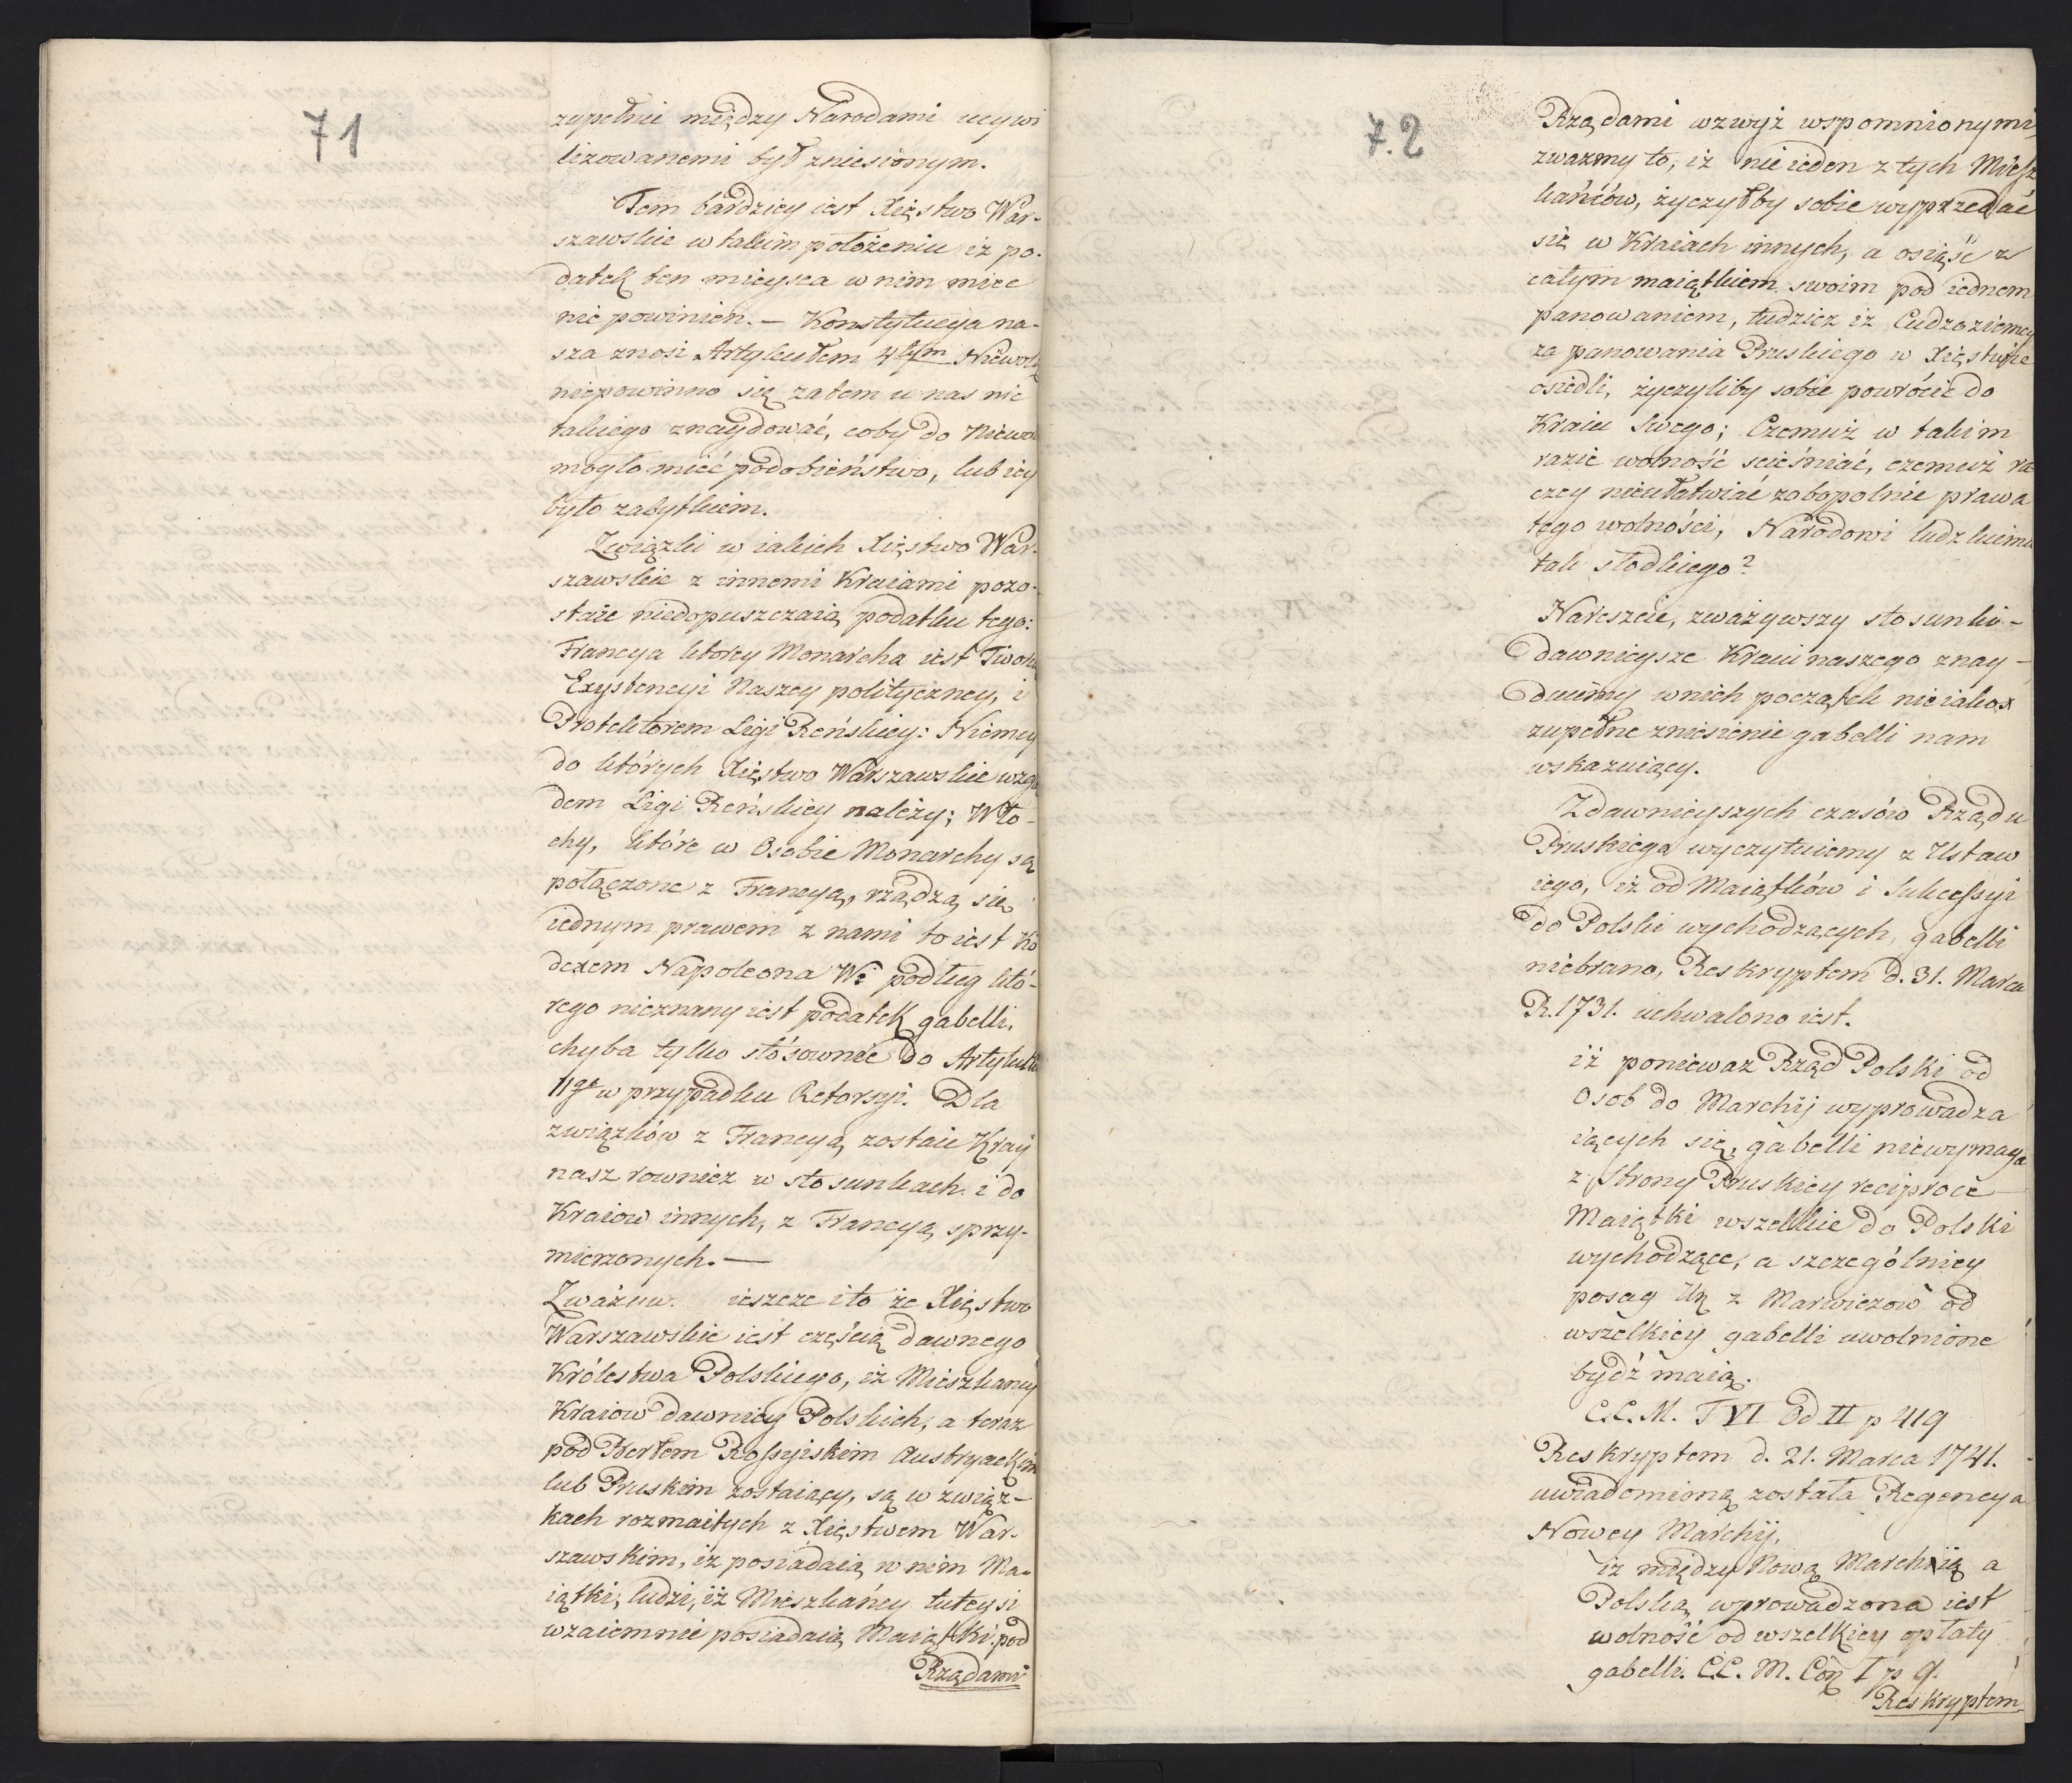 71
zupełnie między Narodami ucywi
lizowanemi był zniesionym.
Tem bardziey iest Xięstwo War-
szawskie w takim położeniu iż po-
datek ten mieysca w nim mieć
nie powinien. – Konstytucya na-
sza znosi Artykułem 4tym Niewolą
niepowinno się zatem u nas nic
takiego znaydować, coby do Niewoli
mogło mieć podobieństwo, lub iey
było zabytkiem.
Związki w iakich Xięstwo War-
szawskie z innemi Kraiami pozo-
staie niedopuszczaią podatku tego:
Francya ktorey Monarcha iest Twórcą
Exystencyi Naszey polityczney, i
Protektorem Ligi Reńskiey: Niemcy
do których Xięstwo Warszawskie wzglę
dem Ligi Reńskiey należy; Wło-
chy, które w Osobie Monarchy są
połączone z Francyą, rządzą się
iednym prawem z nami to iest Ko
dexem Napoleona Wo podług któ-
rego nieznany iest podatek gabelli,
chyba tylko stósownie do Artykułu
11go w przypadku Retorsyi. Dla
związków z Francyą zostaie Kray
nasz rownież w stosunkach i do
Kraiow innych, z Francyą sprzy-
mierzonych. —
Zważmy ieszcze i to że Xięstwo
Warszawskie iest częścią dawnego
Królestwa Polskiego, iż Mieszkańcy
Kraiow dawniey Polskich, a teraz
pod Berłem Rossyiskim Austryackim
lub Pruskim zostaiący, są w związ-
kach rozmaitych z Xięstwem War-
szawskim, iż posiadaią w nim Ma-
iątki, ludzi, iż Mieszkańcy tuteysi
wzaiemnie posiadaią Maiątki pod
Rządami
72
Rządami wzwyż wspomnionymi,
zważmy to, iż nie ieden z tych Miesz
kańców, życzyłby sobie wyprzedać
się w Kraiach innych, a osiąść z
całym maiątkiem swoim pod iednem
panowaniem, tudzież iż Cudzoziemcy
za panowania Pruskiego w Xięstwie
osiedli, życzyliby sobie powrócić do
Kraiu swego; Czemuż w takim
razie wolność scieśniać, czemuż ra
czey nieułatwiać zobopolnie prawa
tego wolności, Narodowi ludzkiemu
tak słodkiego?
Nareszcie, zważywszy stosunki -
dawnieysze Kraiu naszego znay -
duiemy w nich początek nieiakos
zupełne zniesienie gabelli nam
wskazuiący.
Zdawnieyszych czasów Rządu
Pruskiego wyczytuiemy z Ustaw
iego, iż od Maiątków i Sukcessyi
do Polski wychodzących, gabelli
niebrano, Reskryptem d. 31. Marca
R. 1731. uchwalono iest.
iż ponieważ Rząd Polski od
Osob do Marchij wyprowadza
iących się, gabelli niewymaga
z Strony Pruskiey reciproce —
Maiątki wszelkie do Polski
wychodzące, a szczególniey
posag z Marwiczow od
wszelkiey gabelli uwolnione
bydź maią.
C.C. M. T VI Od II p 419
Reskryptem d. 21. Marca 1741.
uwiadomiona została Regencya
Nowey Marchij,
iż między Nową Marchią a
Polską wprowadzona iest
wolność od wszelkiey opłaty
gabelli. C.C. M. Con I p 9.
Reskryptem